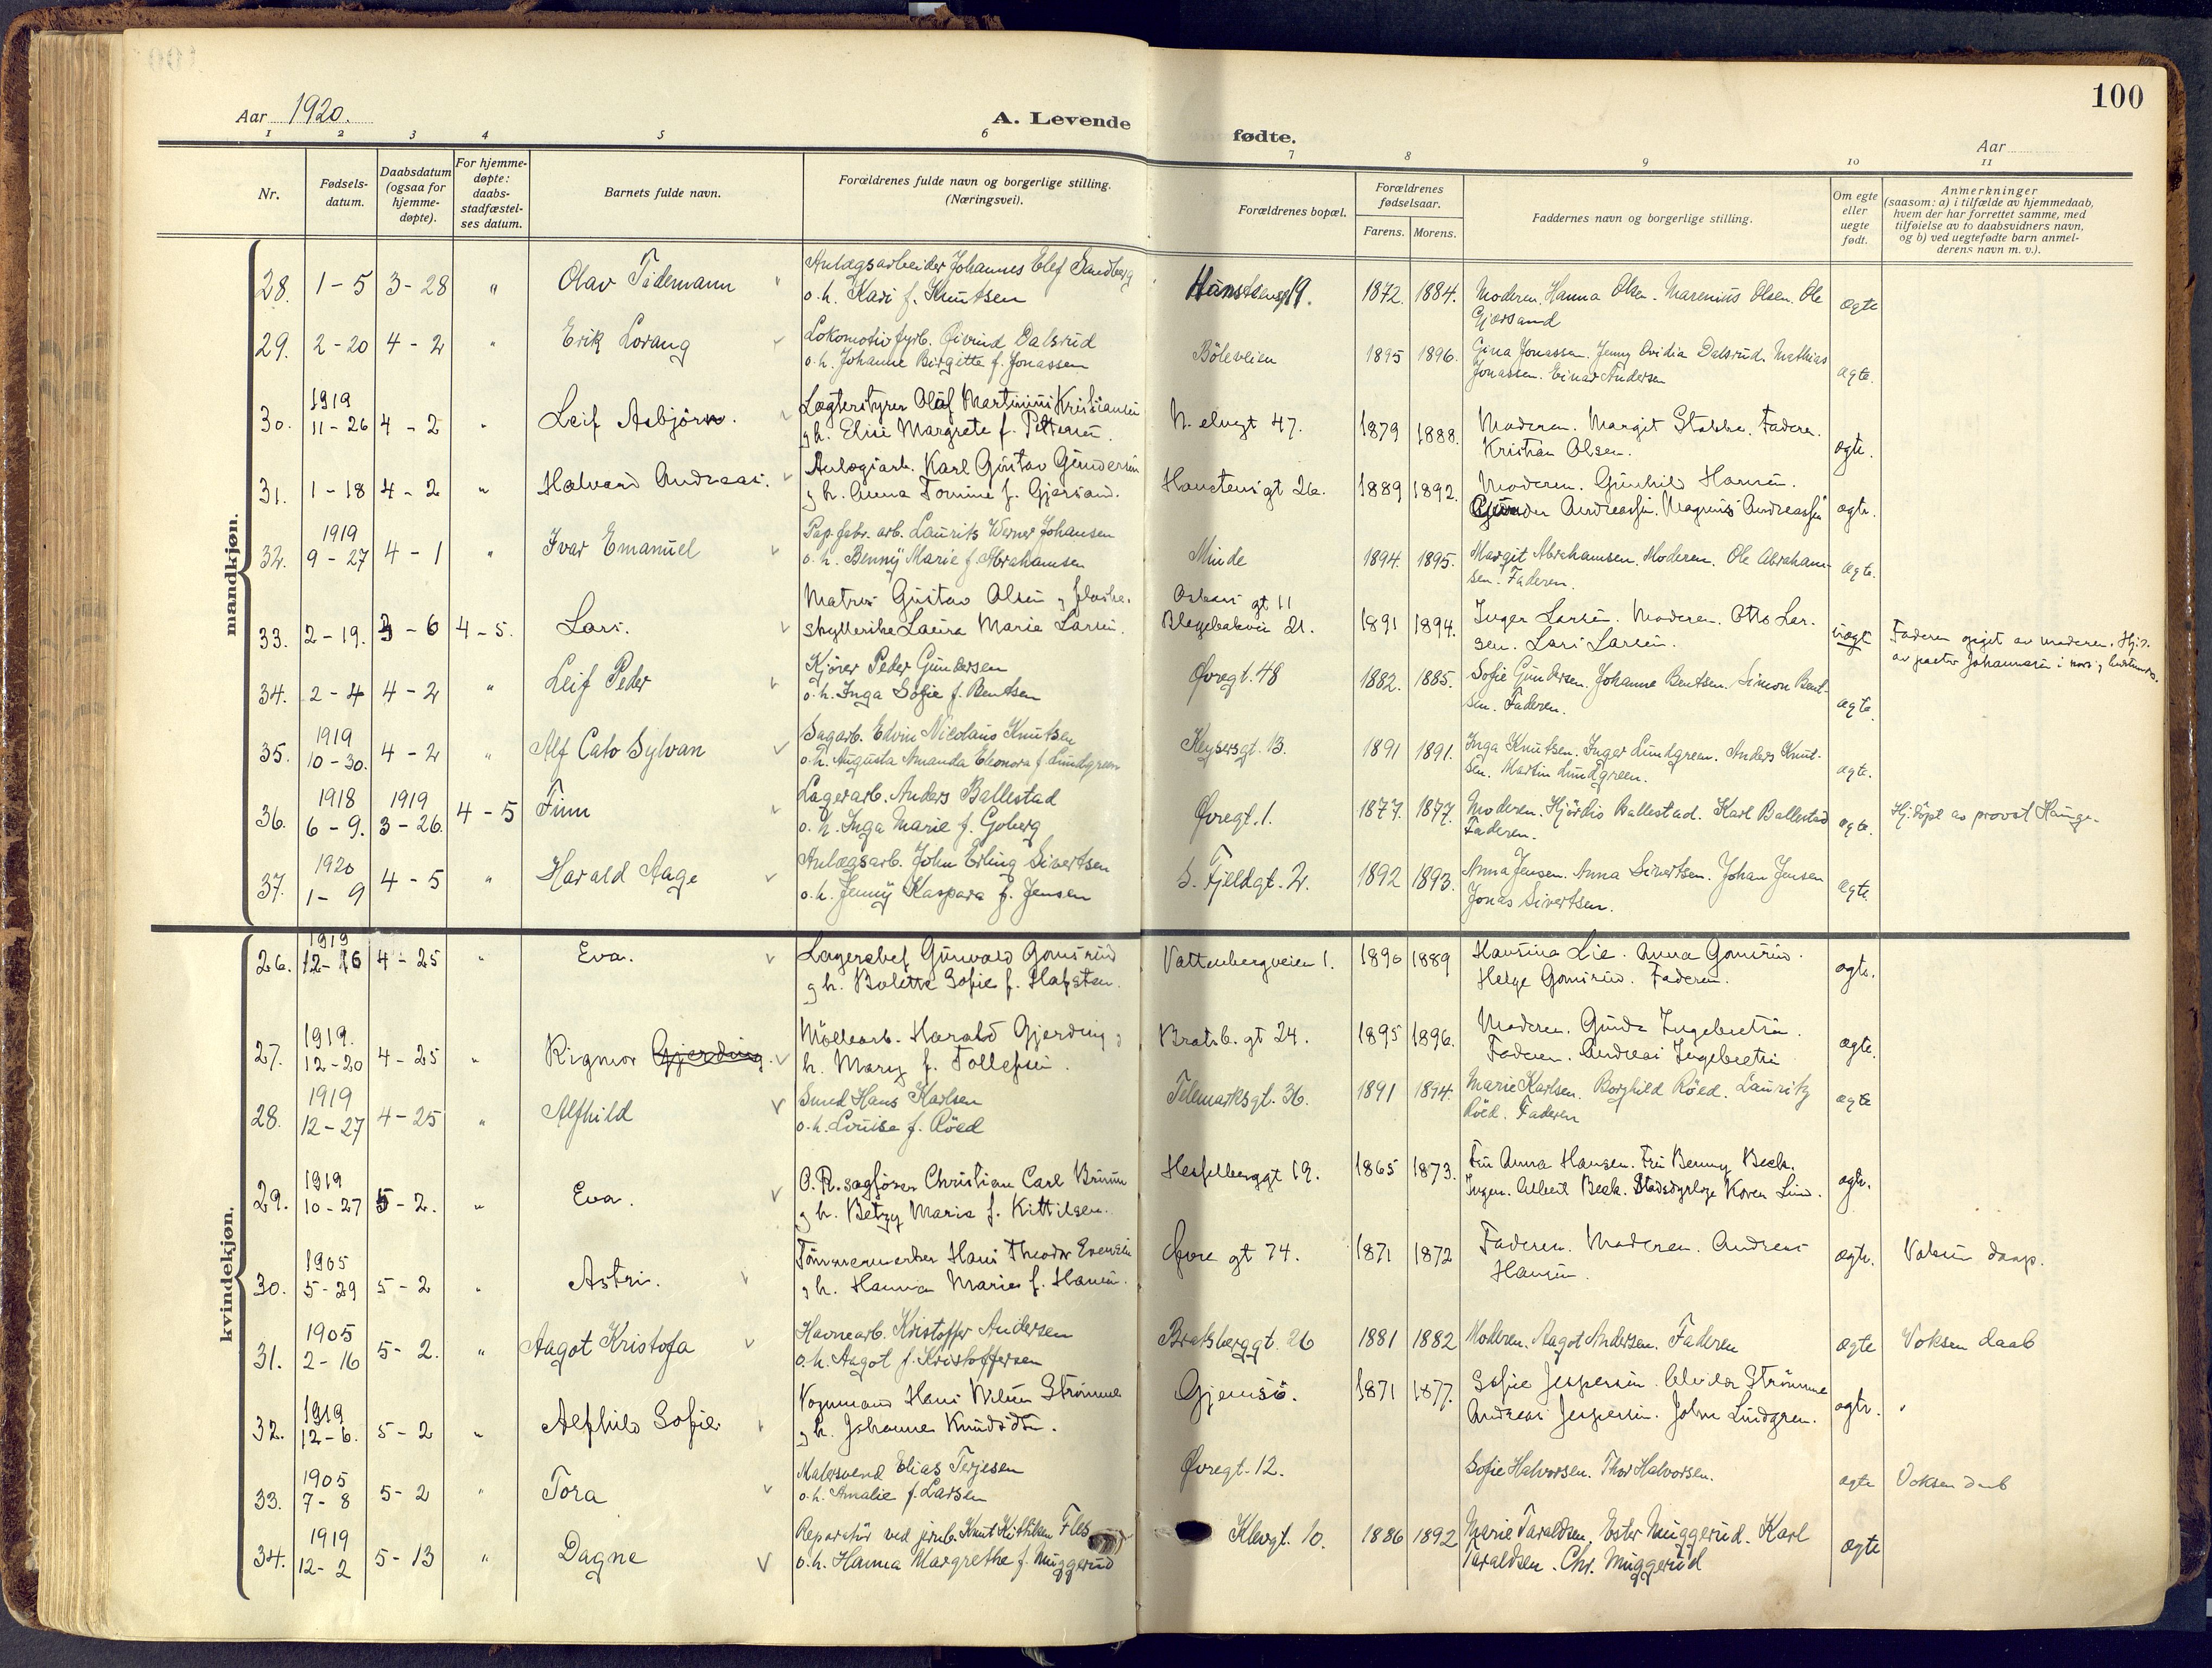 100
Aar 1920.
A. Levende fødte.
Aar
1 2 3 4 5 6 7 8 9 10 11
Nr.
Fødsels-
datum.
Daabsdatum
(ogsaa for
hjemme-
døpte).
For hjemme-
døpte:
daabs-
stadfæstel-
ses datum.
Barnets fulde navn.
Forældrenes fulde navn og borgerlige stilling.
(Næringsvei).
Forældrenes bopæl.
Forældrenes
fødselsaar.
Farens. Morens.
Faddernes navn og borgerlige stilling.
Om egte
eller
uegte
født.
Anmerkninger
(saasom: a) i tilfælde av hjemmedaab,
hvem der har forrettet samme, med
tilføielse av to daabsvidners navn,
og b) ved uegtefødte barn anmel-
derens navn m. v.).
mandkjøn.
28. 1-5 3-28 " Olav Tidemann Anlægsarbeider Johannes Elef Sandberg 1872. 1884. Moderen. Hanna Olsen. Marenius Olsen. Ole ægte
o. h. Kari f. Knutsen Gjersand
29. 2-20 4-2 " Erik Lorang Lokomotivfyrb. Øivind Dalsrud Böleveien 1895 1896. Gina Jonassen. Jenny Ovidia Dalsrud. Mathias ægte.
o. h. Johanne Birgitte f. Jonassen Jonassen. Einar Andersen
1919
30. 11-26 4-2 " Leif Asbjørn. Olaf Martinius Kristiansen N. elvegt 47. 1879 1888. Moderen. Margit Stokke. Faderen. ægte.
g h. Elise Margrete f. Pettersen. Kristian Olsen.
31. 1-18 4-2 " Halvard Andreas. Anlægsarb. Karl Gustav Gundersen Hanstensgt 26. 1889 1892. Moderen. Gunhild Hansen. ægte.
g h. Anna Tomine f. Gjersand. Gunder Andreassen. Magnus Andreassen
1919
32. 9-27 4-1 " Ivar Emanuel Pap.fabr. arb. Laurits Werner Johansen Minde 1894. 1895. Margit Abrahamsen. Moderen. Ole Abraham- ægte.
o. h. Benny Marie f. Abrahamsen sen. Faderen.
33. 2-19. 3-6 4-5. Lars. Matros Gustav Olsen g flaske- 1891 1894. Inger Larsen. Moderen. Otto Lar- uægt
skyllerske Laura Marie Larsen. 21. sen. Lars Larsen. Faderen opgit av moderen.
34. 2-4 4-2 " Leif Peder Kjører Peder Gundersen Øvregt. 48 1882. 1885. Sofie Gundersen. Johanne Bentsen. Simon Bent- ægte.
o. h. Inga Sofie f. Bentsen sen. Faderen.
1919
35. 10-30. 4-2 " Alf Cato Sylvan Sagarb. Edvin Nicolaus Knutsen Keysersgt. 13. 1891 1891. Inga Knutsen. Inger Lundgreen. Anders Knut- ægte.
o. h. Augusta Amanda Eleonora f. Lundgreen sen. Martin Lundgreen.
1918 1919
36. 6-9. 3-26. 4-5 Finn Lagerarb. Anders Ballestad Øvregt. 1. 1877. 1877. Moderen. Hjördis Ballestad. Karl Ballestad ægte. Hj. døpt av provst Hauge.
o. h. Inga Marie f. Goberg Faderen.
1920
37. 1-9 4-5 " Harald Aage Anlægsarb. John Erling Sivertsen S. Fjeldgt. 2. 1892 1893. Anna Jensen. Anna Sivertsen. Johan Jensen ægte.
o. h. Jenny Kaspara f. Jensen Jonas Sivertsen.
kvindekjøn.
1919
26. 12-16 4-25 " Eva. Lagerchef Gunvald Gomsrud Vattenbergveien 1. 1896 1889 Hansina Lie. Anna Gomsrud. ægte.
g h. Bolette Sofie f. Helge Gomsrud. Faderen.
1919.
27. 12-20 4-25 " Rigmor Gjerding. Möllearb. Harald Gjerding g Bratsb. gt 24. 1895 1896. Moderen. Gunda Ingebretsen. ægte.
h. Mary f. Tollefsen. Faderen. Andreas Ingebretsen
1919
28. 12-27 4-25 " Alfhild Smed Hans Karlsen Telemarksgt. 36. 1891 1894. Marie Karlsen. Borghild Röed. Lauritz ægte
o. h. Louise f. Röed Röed. Faderen
1919
29. 10-27 5-2. " Eva. O. R. sagfører Christian Carl Bruun Hesselberggt 19. 1865 1873. Fru Anna Hansen. Fru Benny Beck. ægte.
g h. Betzy Marie f. Kittilsen. Ingen. Albert Beck. Stadsdyrlæge Koren Lund.
1905
30. 5-29 5-2 " Astri. Tömmermerker Hans Theodor Evensen Øvre gt 74. 1871 1872 Faderen. Moderen. Andreas ægte. Voksen daap.
g h. Hanna Marie f. Hansen. Hansen.
1905
31. 2-16 5-2. " Aagot Kristofa Havnearb. Kristoffer Andersen Bratsberggt. 26 1881 1882 Moderen. Aagot Andersen. Faderen ægte Voksen daab
o. h. Aagot f. Kristoffersen
1919
32. 12-6. 5-2 " Alfhild Sofie Vognmand Hans Strømme Gjemsö. 1871 1877. Sofie Jespersen. Strømme ægte.
g h. Johanne Knudsdtr. Andreas Jespersen. John Lindgren.
1905
33. 7-8 5-2 " Tora Malersvend Elias Terjesen Øvregt. 12. Sofie Halvorsen. Thor Halvorsen. ægte Voksen daab
o. h. Amalie f. Larsen
1919
34. 12-2 5-13 " Dagne Reparatør ved jernb. Knut Kittilsen Fles Klevgt. 10. 1886 1892 Marie Taraldsen. Ester Muggerud. Karl ægte
o. h. Hanna Margrethe f. Muggerud Taraldsen. Chr. Muggerud